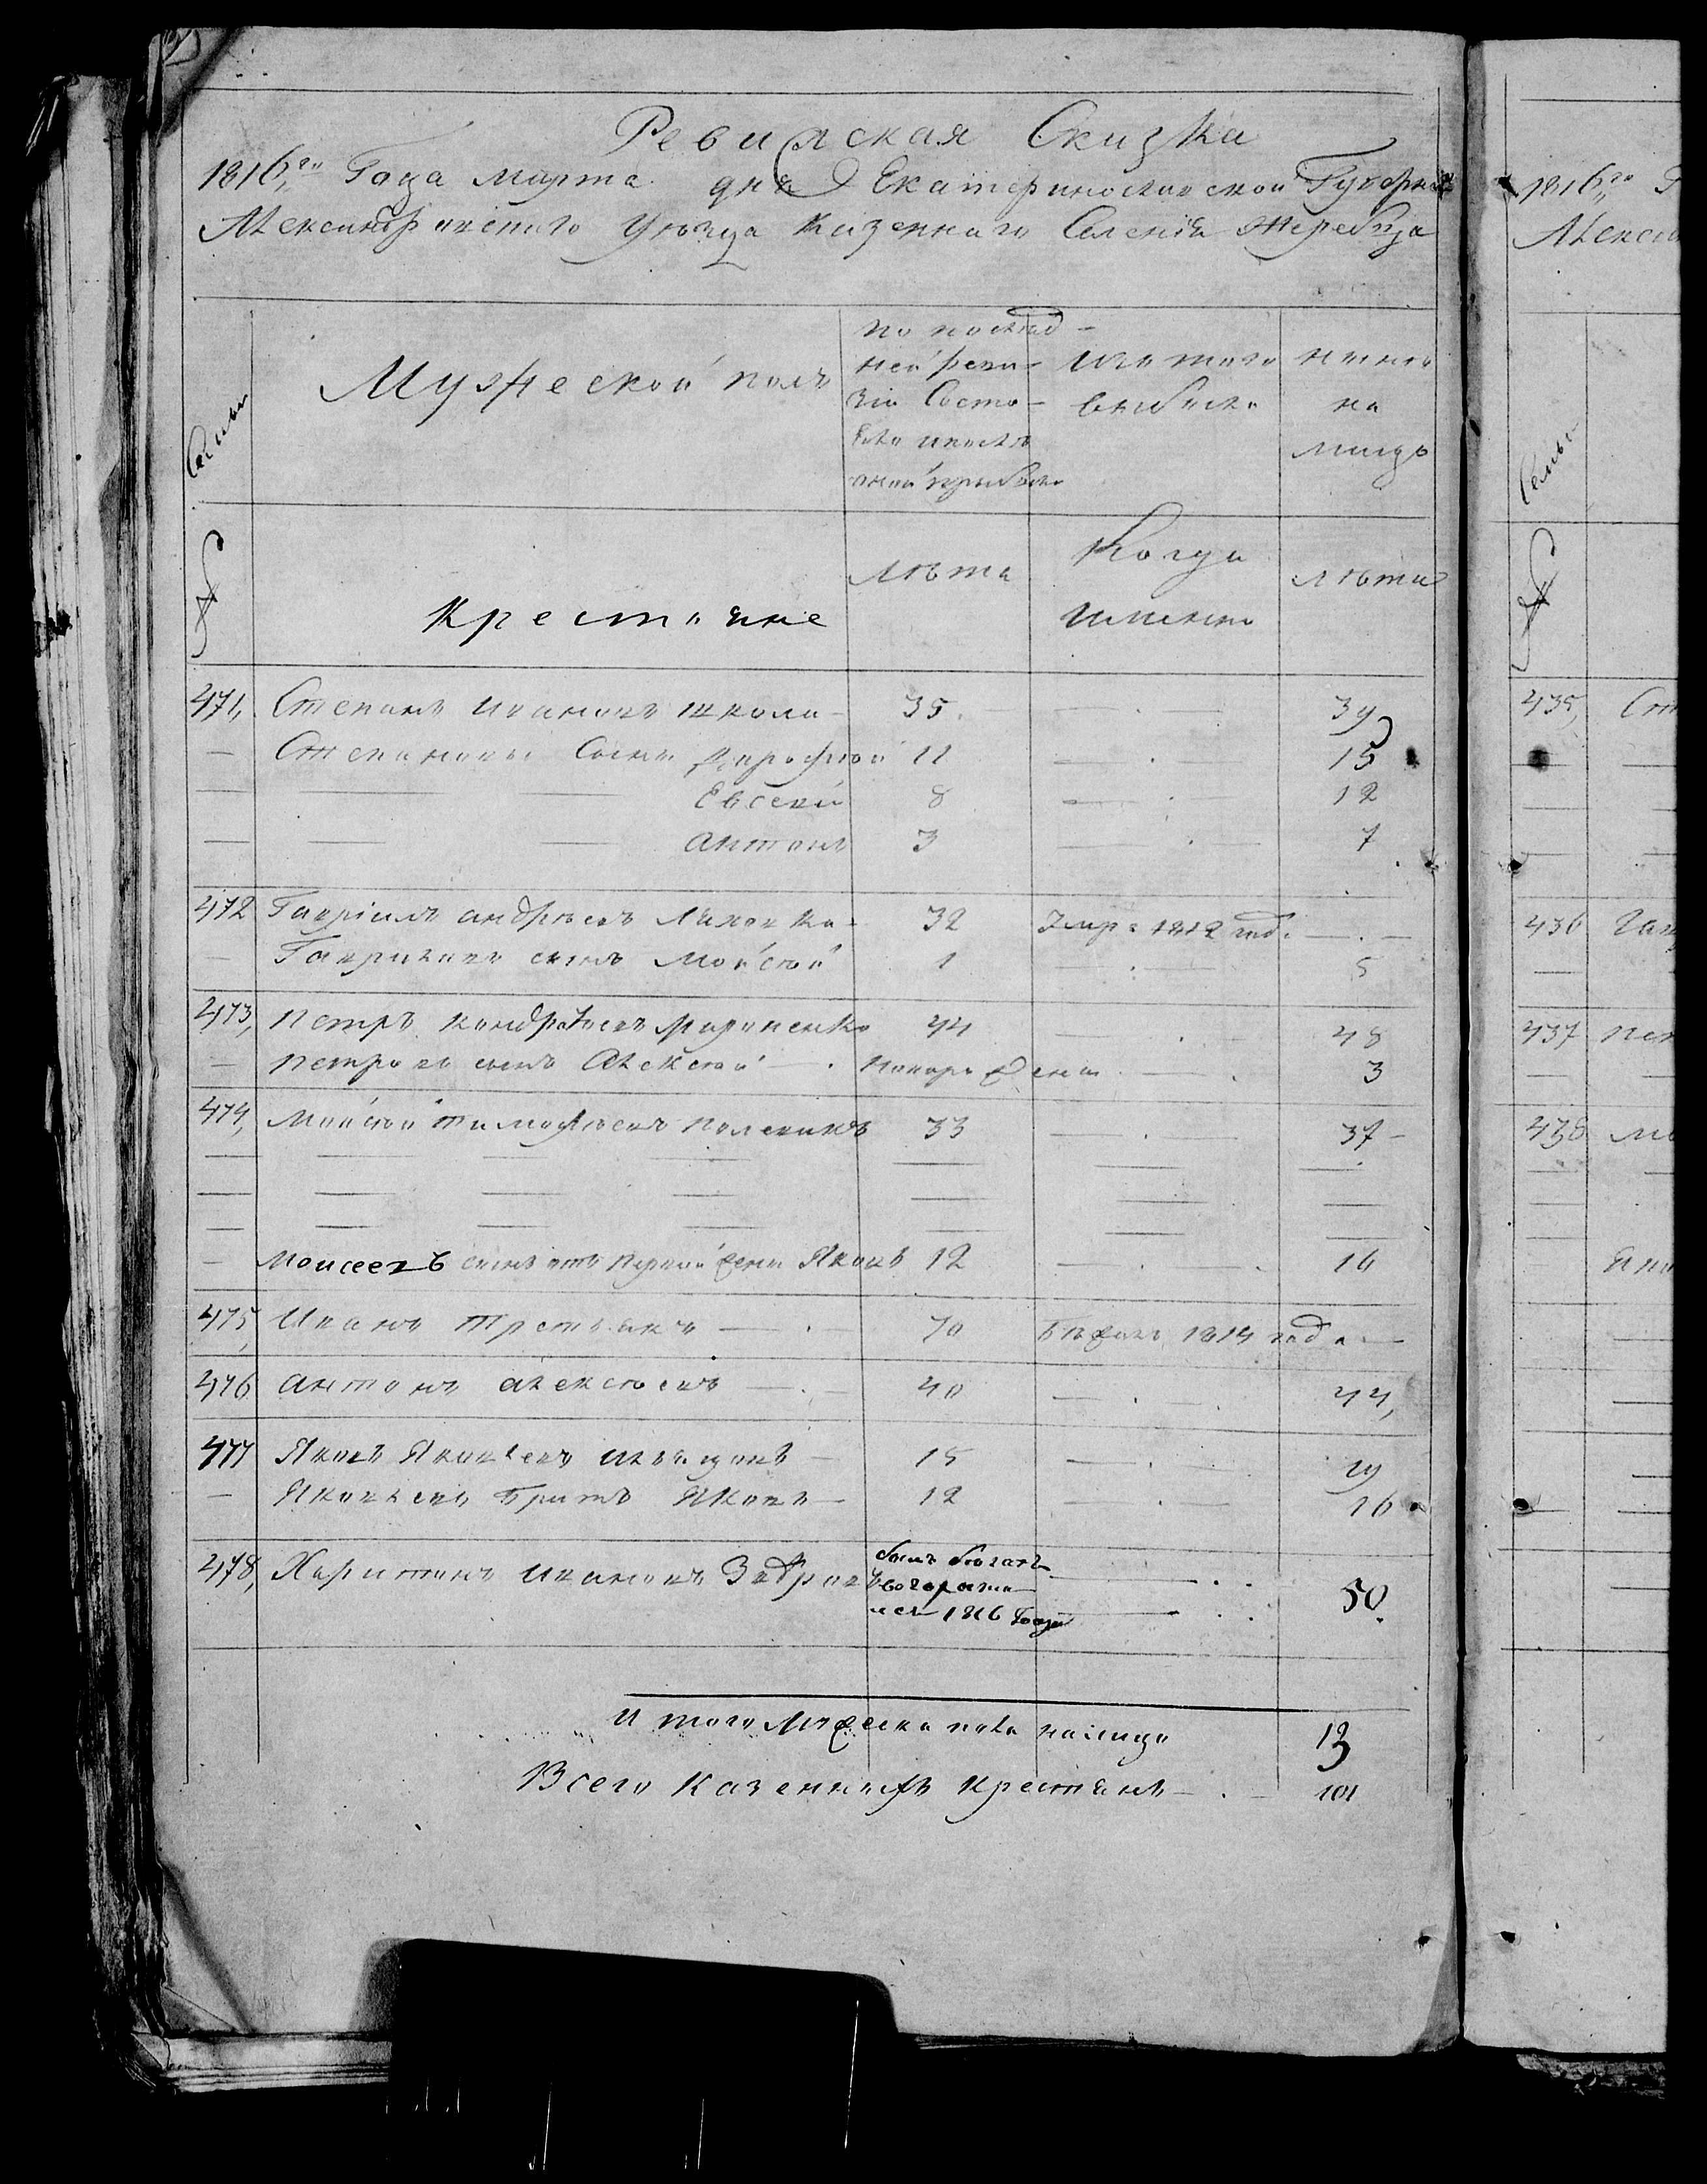 Ревижская Сказка
1816го Года марта дня Екатеринославской Губернии
Александровского Уезда Казенного Селения Жеребца
Семьи
Мужеской полъ
по послѣд-
ней реви-
зіи Состо-
яло и послѣ
оной прибыло
Изъ того
выбыло
нынѣ
на
лицо
№
Крестьяне
Лѣта
Когда
имянно
лѣта
471, Степанъ Ивановъ Школа 35. 39
Степановы Сыны 11 15
Евсей 8 12
Антонъ 3 7
472 Гавріилъ андрѣевъ 32 Умре 1812 года
Гавриловъ сынъ Мойсей 1 5
473, Петръ Кондратьевъ 44 48
Петровъ сынъ Алексей новорожденъ 3
474, Мойсей тимофѣевъ 33 37
Моисеевъ сынъ отъ первой жены Яковъ 12 16
475, Иванъ Третьякъ 70 Бежалъ 1814 года
476 антонъ алексѣевъ 40 44,
477 Яковъ Яковлевъ 15 19
Яковлевъ братъ Яковъ 12 16
478, Харитонъ Ивановъ былъ бежалъ
возврати
лся 1816 Года 50.
Итого Мужеска пола налицо 13
Всего Казенныхъ крестьянъ 101
1816го Г
Алекса
Семьи
№
435, Сте
436 Гав
437 Пет
438 Мо